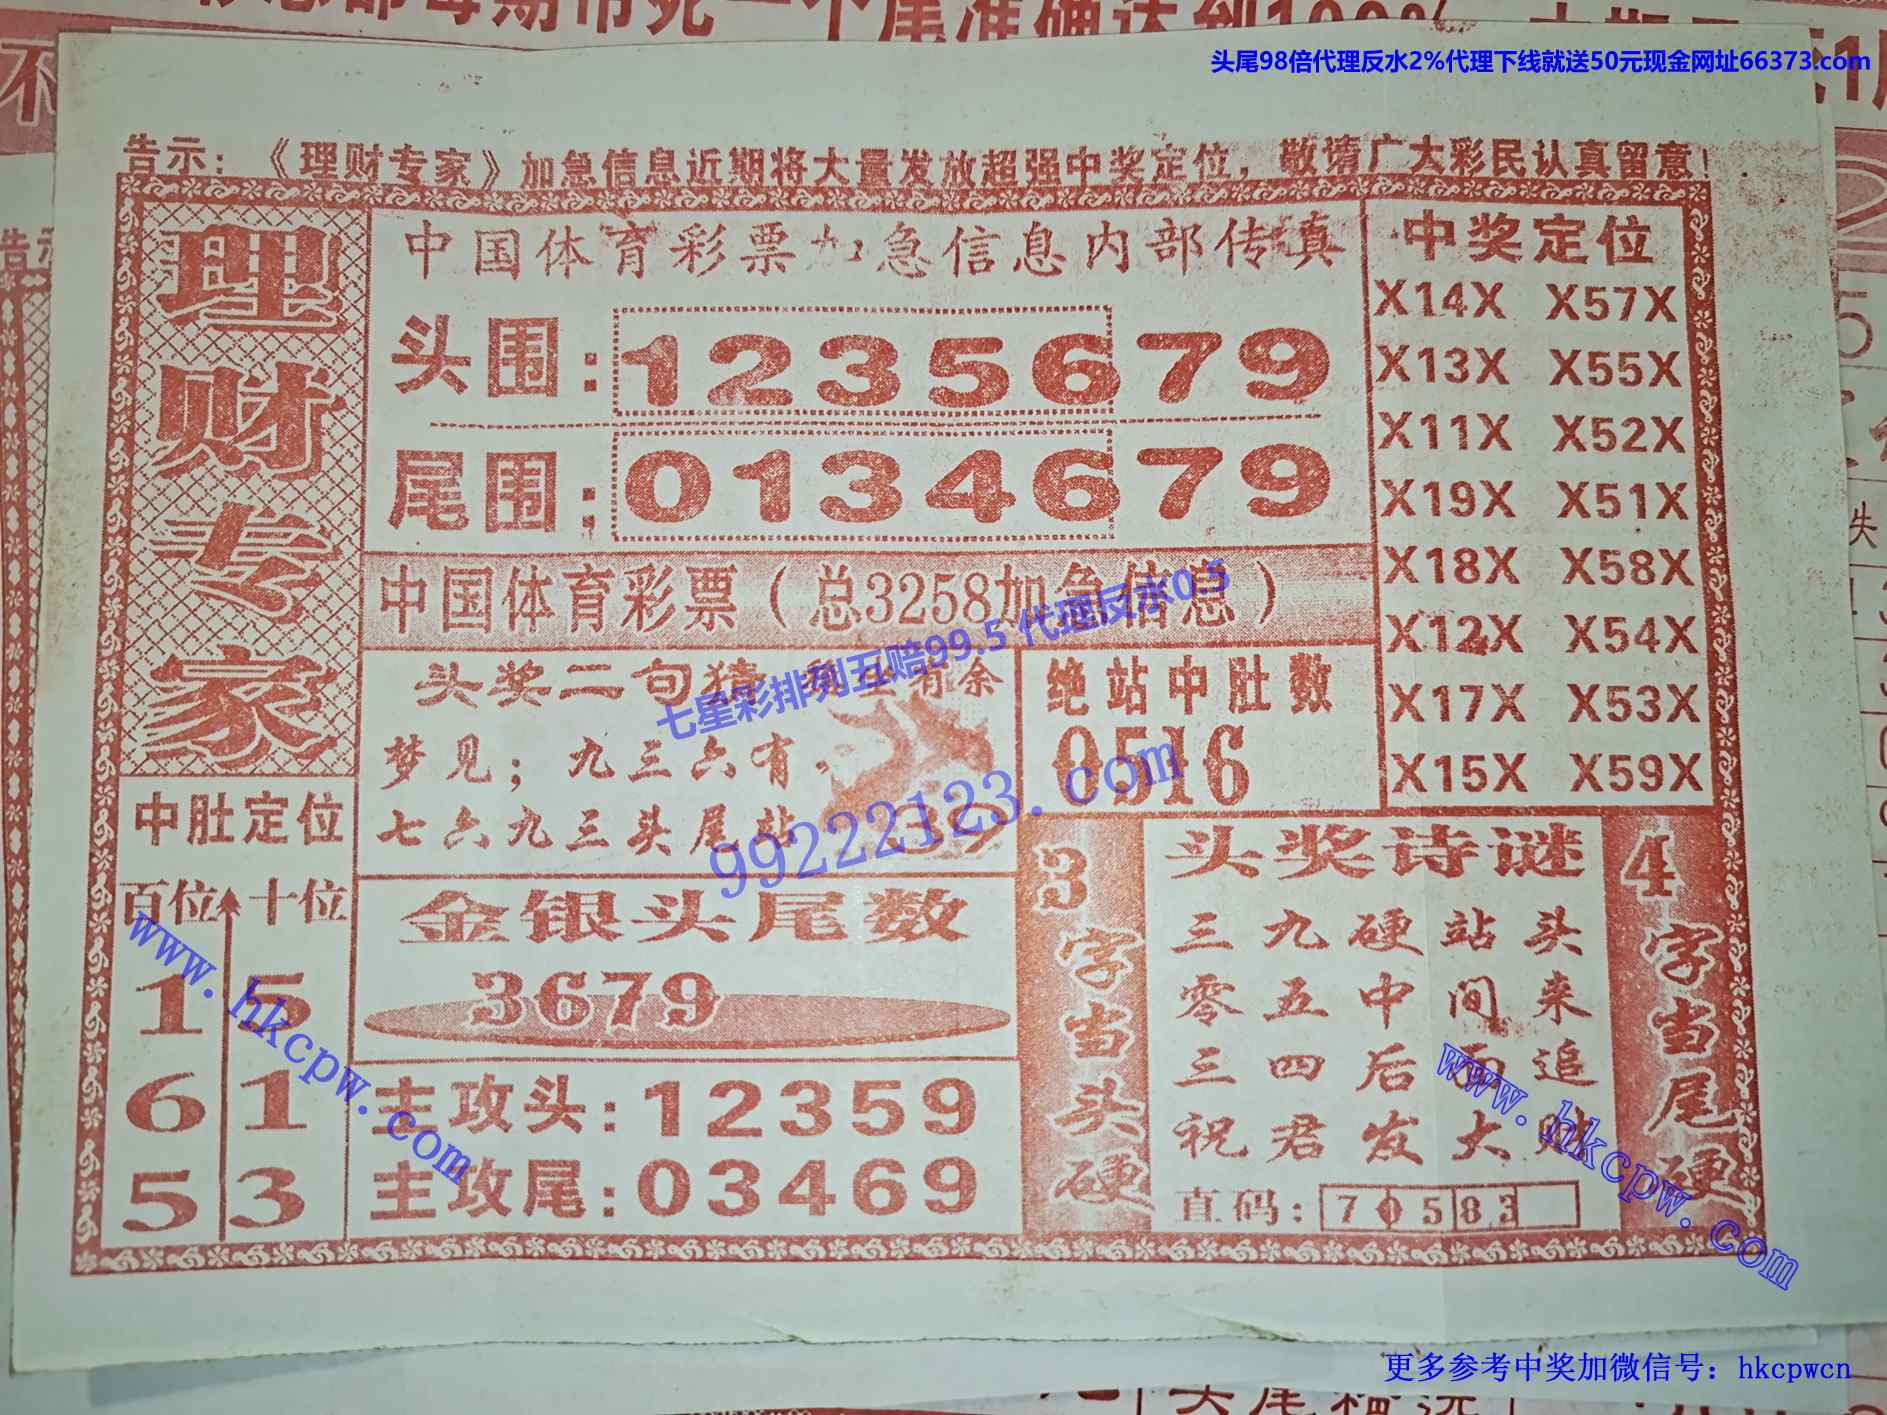 头尾98倍代理反水2%代理下线就送50元现金网址66373.com
告示：《理财专家》加急信息近期将大量发放超强中奖定位，敬请广大彩民认真留意！
理财专家
中国体育彩票加急信息内部传真
头围：1235679
尾围：0134679
中国体育彩票（总3258加急信息）
七星彩排列五赔99.5 代理反水0.5
中奖定位
X14X X57X
X13X X55X
X11X X52X
X19X X51X
X18X X58X
X12X X54X
X17X X53X
X15X X59X
头奖二句猜
有余
梦见；九三六有
七六九三头尾站
99222123.com
绝站中肚数
0516
中肚定位
百位 十位
1 5
6 1
5 3
www.hkcpw.com
金银头尾数
3679
主攻头：12359
主攻尾：03469
3字当头硬
头奖诗谜
三九硬站头
零五中间来
三四后面追
祝君发大财
直码：70583
4字当尾硬
www.hkcpw.com
更多参考中奖加微信号：hkcpwcn